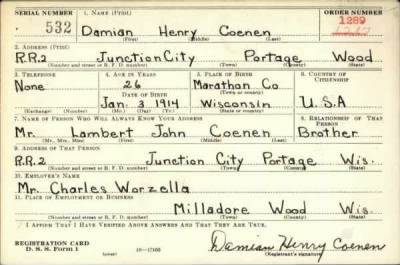 SERIAL NUMBER 1. NAME (Print) ORDER NUMBER
532 Damian Henry Coenen 1289
(First) (Middle) (Last)
2. ADDRESS (Print)
R.R.2 Junction City Portage Wood
(Number and street or R. F. D. number) (Town) (County) (State)
3. TELEPHONE 4. AGE IN YEARS 5. PLACE OF BIRTH 6. COUNTRY OF CITIZENSHIP
None 26 Marathon Co
DATE OF BIRTH (Town or county)
Jan. 3 1914 Wisconsin U.S.A
(Exchange) (Number) (Mo.) (Day) (Yr.) (State or country)
7. NAME OF PERSON WHO WILL ALWAYS KNOW YOUR ADDRESS 8. RELATIONSHIP OF THAT PERSON
Mr. Lambert John Coenen Brother
(Mr., Mrs., Miss) (First) (Middle) (Last)
9. ADDRESS OF THAT PERSON
R.R.2 Junction City Portage Wis.
(Number and street or R. F. D. number) (Town) (County) (State)
10. EMPLOYER'S NAME
Mr. Charles Worzella
11. PLACE OF EMPLOYMENT OR BUSINESS
Milladore Wood Wis.
(Number and street or R. F. D. number) (Town) (County) (State)
I AFFIRM THAT I HAVE VERIFIED ABOVE ANSWERS AND THAT THEY ARE TRUE.
REGISTRATION CARD
D. S. S. Form 1 Damian Henry Coenen
(Registrant's signature)